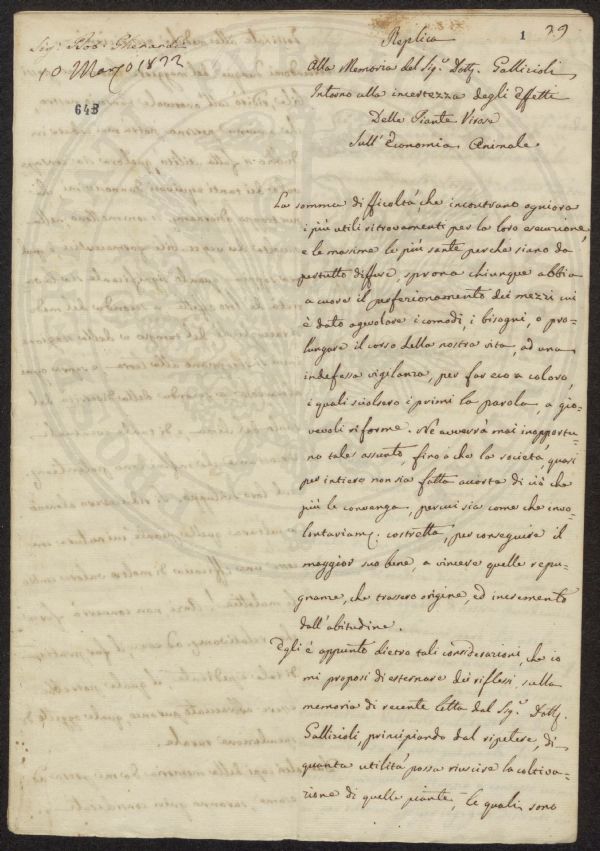 Sigr. Dor. Gherardi
10 Marzo 1822
643
1 29
Replica
Alla Memoria del Sigr. Dottr. Gallicioli,
Intorno alla incertezza degli Effetti
Delle Piante Virose
Sull' Economia Animale.
La somma difficoltà, che incontrano ogniora
i più utili ritrovamenti per la loro esecuzione,
e le massime le più sante perchè siano da
pertutto diffuse, sprona chiunque abbia
a cuore il perfezionamento dei mezzi cui
è dato agevolare i comodi, i bisogni, o pro=
lungare il corso della nostra vita, ad una
indefessa vigilanza, per far eco a coloro,
i quali sciolsero i primi la parola, a gio=
vevoli riforme. Nè avverrà mai inopportu=
no tale assunto, fino a che la società, quasi
per intiero non sia fatta accorta di ciò che
più le convenga, per cui sia come che invo=
lontariam. costretta, per conseguire il
maggior suo bene, a vincere quelle repu=
gnanze, che trassero origine, ed incremento
dall'abitudine.
Egli è appunto dietro tali considerazioni, che io
mi proposi di esternare dei riflessi sulla
memoria di recente letta dal Sigr. Dottr.
Gallicioli, principiando dal ripetere, di
quanta utilità possa riuscire la coltiva=
zione di quelle piante, le quali sono